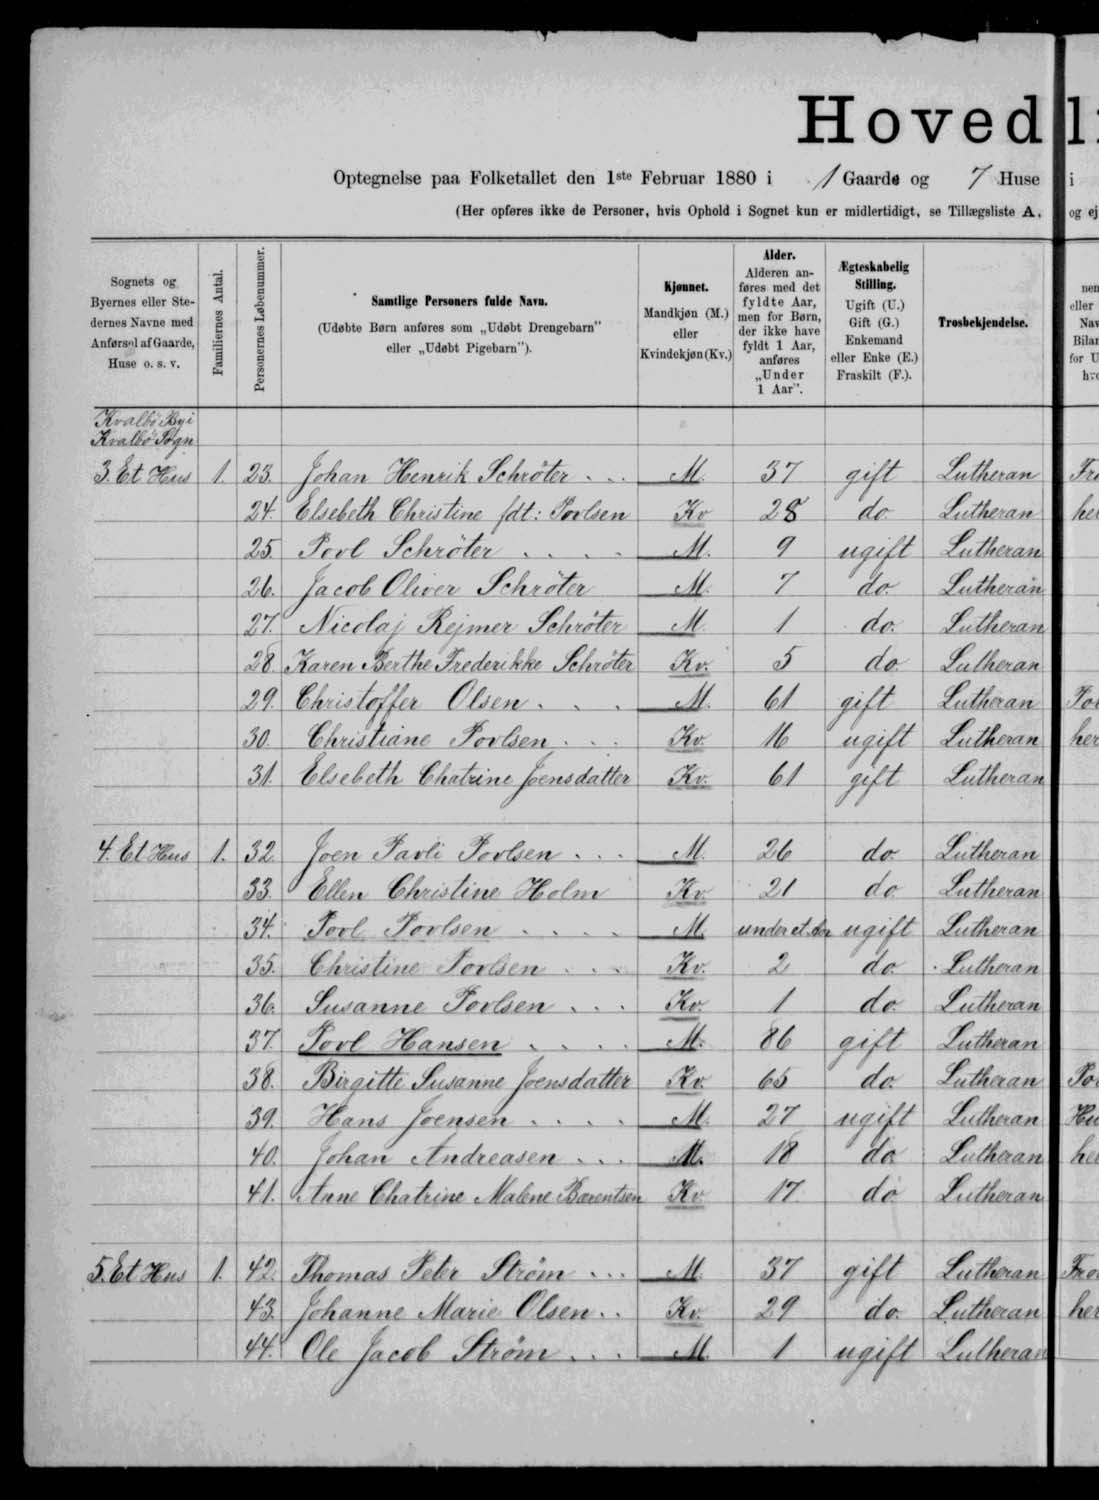 Hovedli
Optegnelse paa Folketallet den 1ste Februar 1880 i 1 Gaarde og 7 Huse i
(Her opføres ikke de Personer, hvis Ophold i Sognet kun er midlertidigt, se Tillægsliste A, og ej
Sognets og Byernes eller Stedernes Navne med Anførsel af Gaarde, Huse o. s. v.
Familiernes Antal.
Personernes Løbenummer.
Samtlige Personers fulde Navn.
(Udøbte Børn anføres som „Udøbt Drengebarn"
eller „Udøbt Pigebarn").
Kjønnet.
Mandkjøn (M.)
eller
Kvindekjøn (Kv.)
Alder.
Alderen an-
føres med det
fyldte Aar,
men for Børn,
der ikke have
fyldt 1 Aar,
anføres
„Under
1 Aar".
Ægteskabelig
Stilling.
Ugift (U.)
Gift (G.)
Enkemand
eller Enke (E.)
Fraskilt (F.).
Trosbekjendelse.
Kvalbø By i
Kvalbø Sogn
3. Et Hus 1. 23. Johan Henrik Schrøter M. 37 gift Lutheran
24. Elsebeth Christine fdt: Povlsen Kv 28 do. Lutheran
25. Povl Schröter M. 9 ugift Lutheran
26. Jacob Oliver Schröter M. 7 do. Lutheran
27. Nicolaj Rejmer Schröter M. 1 do. Lutheran
28. Karen Berthe Frederikke Schrøter Kv. 5 do. Lutheran
29. Christoffer Olsen M. 61 gift Lutheran
30. Christiane Povlsen Kv. 16 ugift Lutheran
31. Elsebeth Chatrine Joensdatter Kv. 61 gift Lutheran
4. Et Hus 1. 32. Joen Pavli Povlsen M. 26 do. Lutheran
33. Ellen Christine Holm Kv. 21 do. Lutheran
34. Povl Povlsen M. under et Aar ugift Lutheran
35. Christine Povlsen Kv. 2 do. Lutheran
36. Susanne Povlsen Kv. 1 do. Lutheran
37. Povl Hansen M. 86 gift Lutheran
38. Birgitte Susanne Joensdatter Kv. 65 do. Lutheran
39. Hans Joensen M. 27 ugift Lutheran
40. Johan Andreasen M. 18 do. Lutheran
41. Anne Chatrine Malene Barentsen Kv. 17. do. Lutheran
5. Et Hus 1. 42. Thomas Peter Strøm M. 37 gift Lutheran
43. Johanne Marie Olsen Kv. 29 do. Lutheran
44. Ole Jacob Strøm M. 1 ugift Lutheran